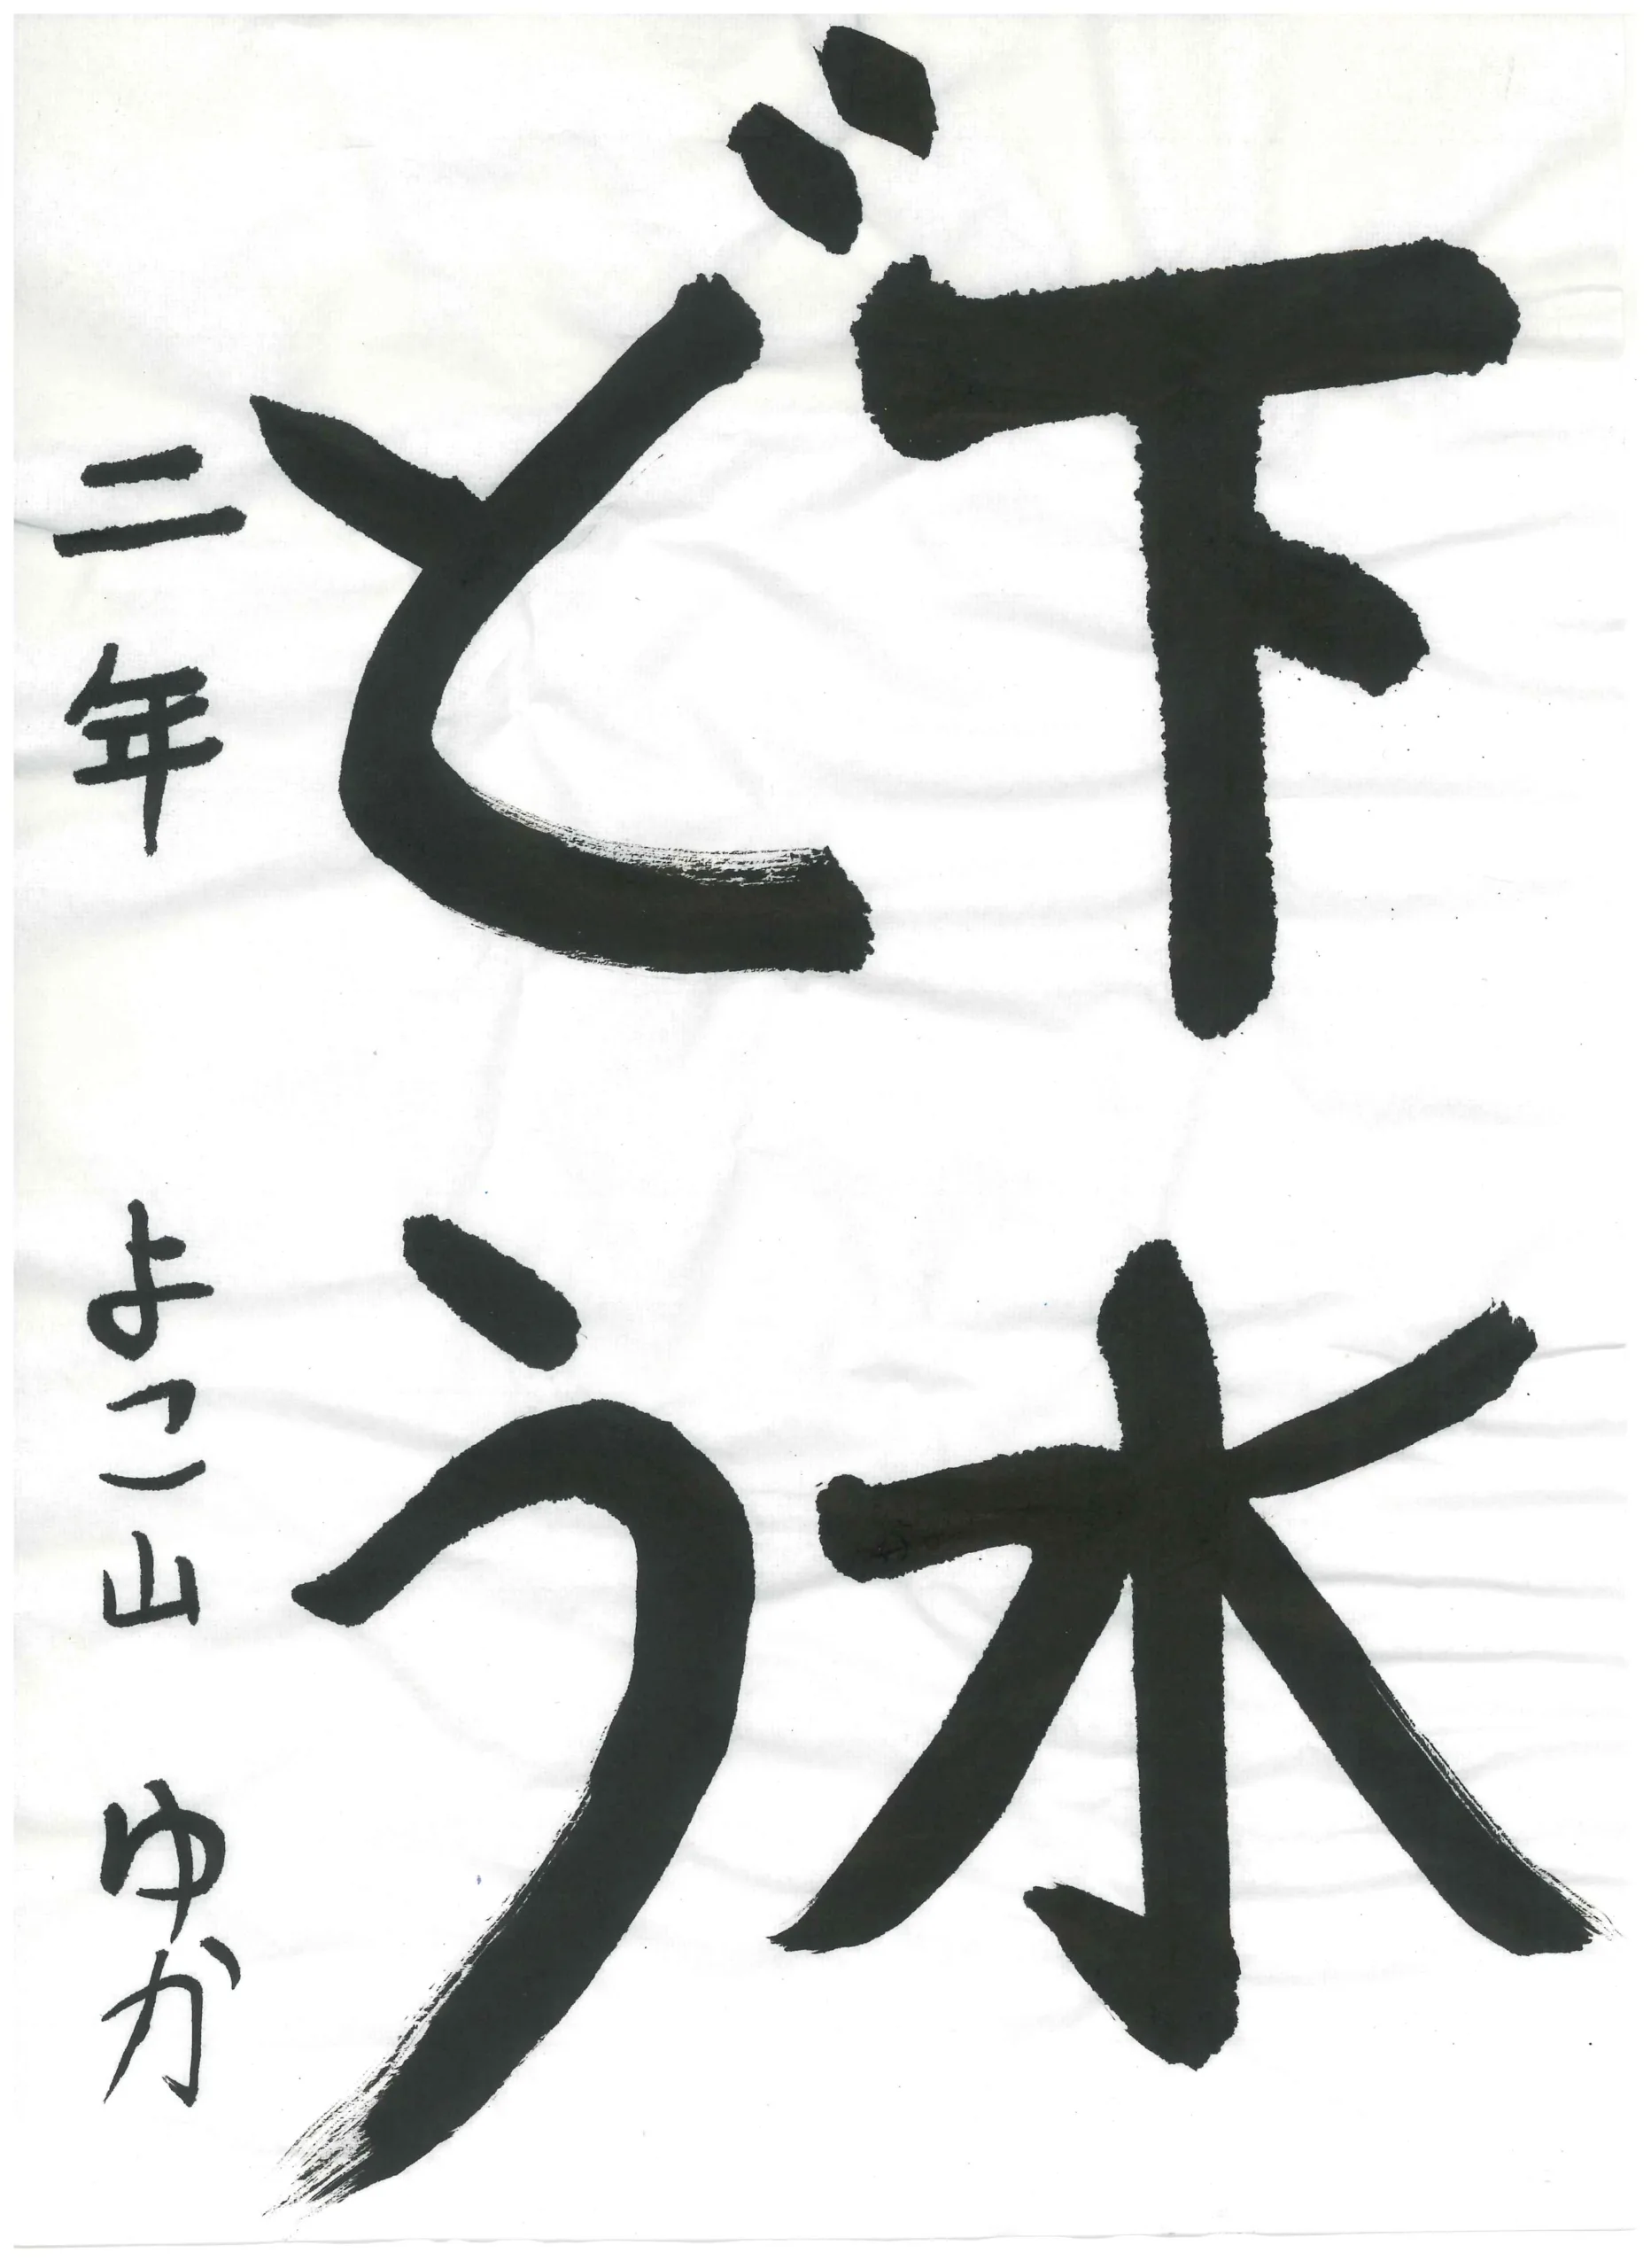 下水
どう
二年 よこ山 ゆか